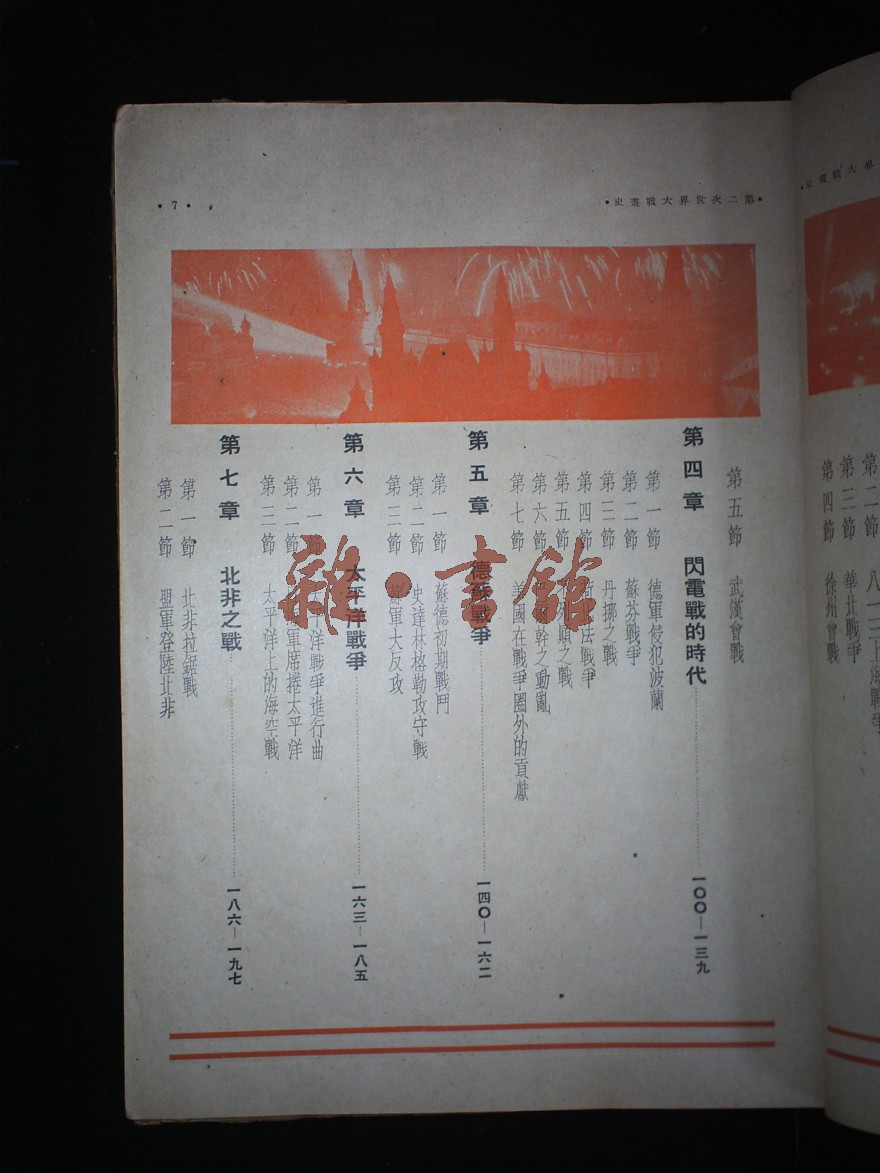 •第二次世界大戰畫史•
•7•
第五節 武漢會戰
第四章 閃電戰的時代 一〇〇—一三九
第一節 德軍侵犯波蘭
第二節 蘇芬戰爭
第三節 丹挪之戰
第四節 法戰爭
第五節 之戰
第六節 幹之動亂
第七節 美國在戰爭圈外的貢獻
第五章 德蘇戰爭 一四〇—一六二
第一節 蘇德初期戰鬥
第二節 史達林格勒攻守戰
第三節 蘇軍大反攻
第六章 太平洋戰爭 一六三—一八五
第一節 太平洋戰爭進行曲
第二節 軍席捲太平洋
第三節 太平洋上的海空戰
第七章 北非之戰 一八六—一九七
第一節 北非拉鋸戰
第二節 盟軍登陸北非
第二節 八一三上海戰爭
第三節 華北戰爭
第四節 徐州會戰
雜•書館